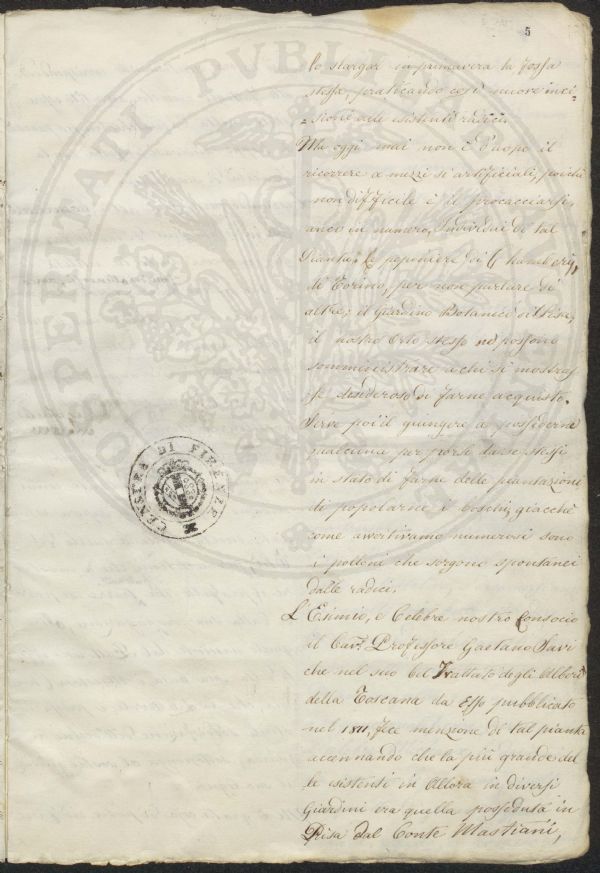 5
lo stargar in primavera la fossa
stessa, praticando così nuove inci=
=sioni alle esistenti radici.
Ma oggi mai non è d'uopo il
ricorrere a mezzi sì artificiali, poichè
non difficile è il procacciarsi,
anco in numero, Individui di tal
Pianta. Le pepiniere di Chambery,
di Torino, per non parlare di
altre; il Giardino Botanico di Pisa,
il nostro Orto stesso ne possono
somministrare a chi si mostras=
se desideroso di farne acquisto.
Serve poi il giungere a possederne
qualcuna per porsi da se stessi
in stato di farne delle piantazioni
di popolarne i boschi, giacchè
come avvertivamo numerosi sono
i polloni che sorgono spontanei
dalle radici.
L'Esimio, e Celebre nostro Consocio
il Cav. Professore Gaetano Savi
che nel suo bel Trattato degli Alberi
della Toscana da Esso pubblicato
nel 1811, fece menzione di tal pianta
accennando che la più grande del
le esistenti in Allora in diversi
Giardini era quella posseduta in
Pisa dal Conte Mastiani,
CENSURA DI FIRENZE
PUBLI
PROSPERITATI